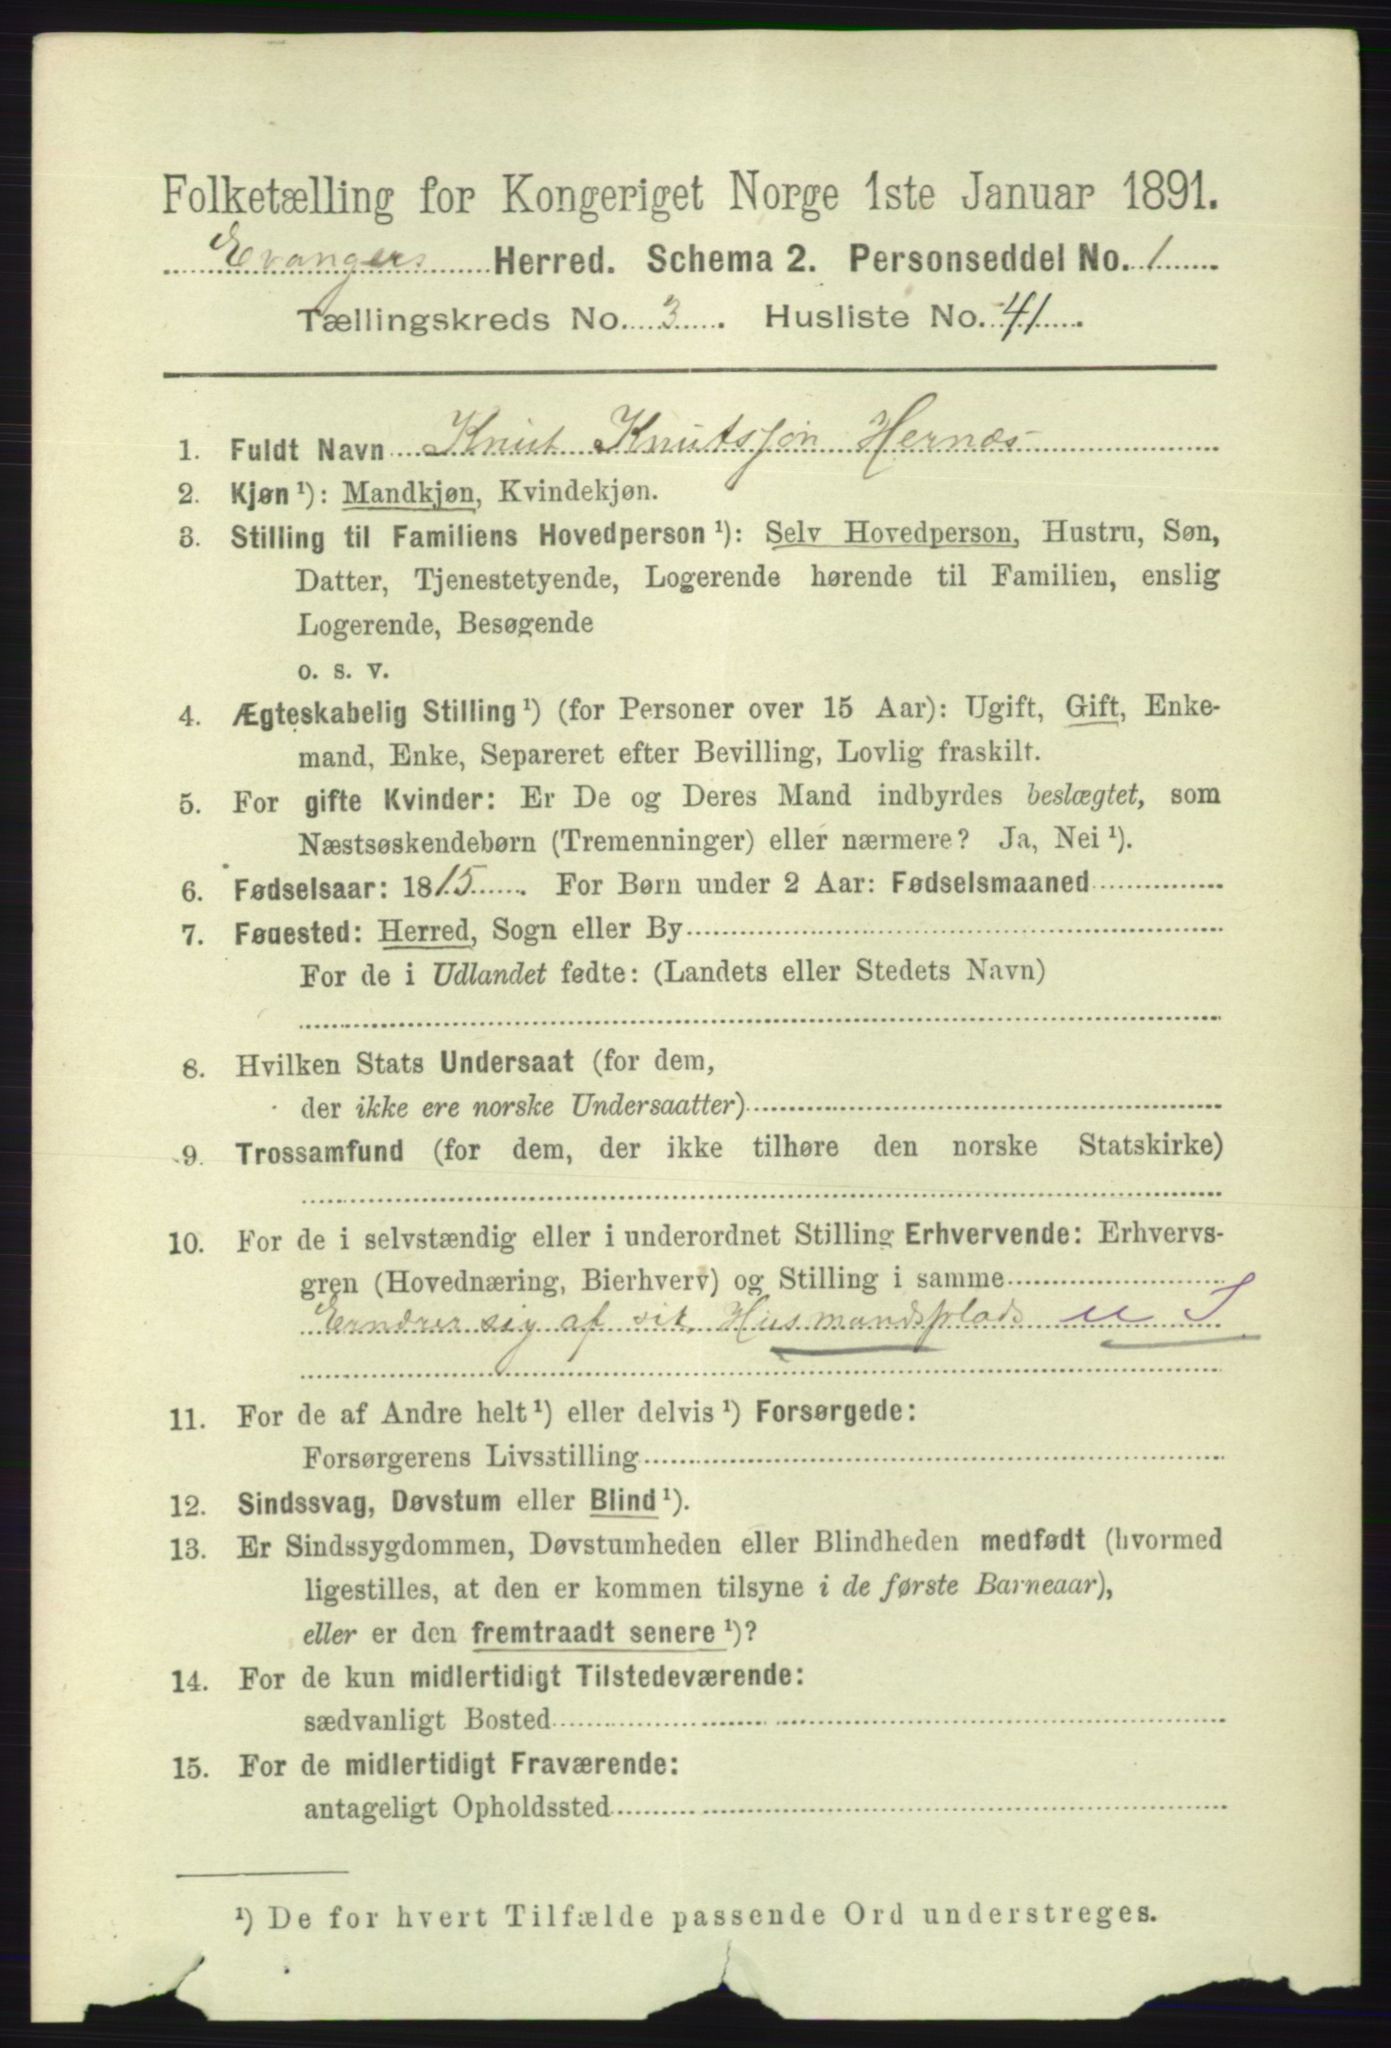 Folketælling for Kongeriget Norge 1ste Januar 1891.
Evangers Herred. Schema 2. Personseddel No. 1
Tællingskreds No. 3. Husliste No. 41.
1. Fuldt Navn Knut Knutsson Hernæs
2. Kjøn ¹): Mandkjøn, Kvindekjøn.
3. Stilling til Familiens Hovedperson ¹): Selv Hovedperson, Hustru, Søn,
Datter, Tjenestetyende, Logerende hørende til Familien, enslig
Logerende, Besøgende
o. s. v.
4. Ægteskabelig Stilling ¹) (for Personer over 15 Aar): Ugift, Gift, Enke-
mand, Enke, Separeret efter Bevilling, Lovlig fraskilt.
5. For gifte Kvinder: Er De og Deres Mand indbyrdes beslægtet, som
Næstsøskendebørn (Tremenninger) eller nærmere? Ja, Nei ¹).
6. Fødselsaar: 1815. For Børn under 2 Aar: Fødselsmaaned
7. Fødested: Herred, Sogn eller By
For de i Udlandet fødte: (Landets eller Stedets Navn)
8. Hvilken Stats Undersaat (for dem,
der ikke ere norske Undersaatter)
9. Trossamfund (for dem, der ikke tilhøre den norske Statskirke)
10. For de i selvstændig eller i underordnet Stilling Erhvervende: Erhvervs-
gren (Hovednæring, Bierhverv) og Stilling i samme
Ernærer sig af sit Husmandsplads u J
11. For de af Andre helt ¹) eller delvis ¹) Forsørgede:
Forsørgerens Livsstilling
12. Sindssvag, Døvstum eller Blind ¹).
13. Er Sindssygdommen, Døvstumheden eller Blindheden medfødt (hvormed
ligestilles, at den er kommen tilsyne i de første Barneaar),
eller er den fremtraadt senere ¹)?
14. For de kun midlertidigt Tilstedeværende:
sædvanligt Bosted
15. For de midlertidigt Fraværende:
antageligt Opholdssted
¹) De for hvert Tilfælde passende Ord understreges.